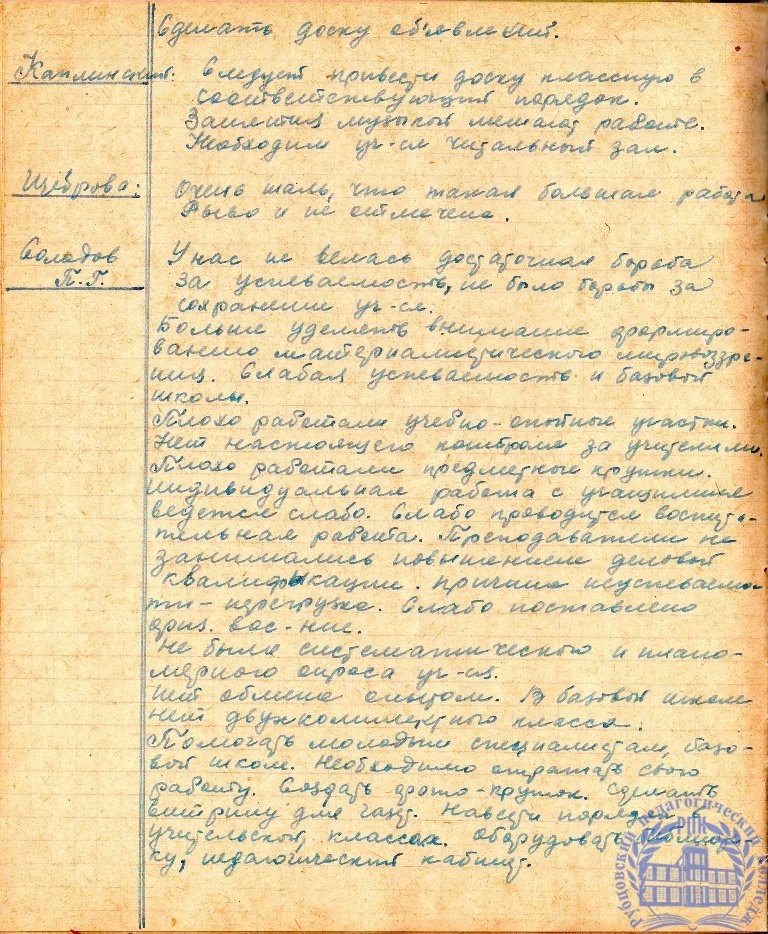 Сделать доску объявлений.
Каплинский: Следует привести доску классную в
соответствующий порядок.
Занятия музыкой мешают работе.
Необходим уч-ся читальный зал.
Щеброва: Очень жаль, что такая большая работа
и не отмечена.
Солодов У нас не велась достаточная борьба
П.Г. за успеваемость, не было борьбы за
сохранение уч-ся.
Больше уделять внимание формиро-
ванию материалистического мировоззре-
ния. Слабая успеваемость и базовой
школы.
Плохо работали учебно-опытные участки.
Нет настоящего контроля за учителями.
Плохо работали предметные кружки.
Индивидуальная работа с учащимися
ведется слабо. Слабо проводится воспита-
тельная работа. Преподаватели не
занимались повышением деловой
квалификации. Причина неуспеваемос-
ти - перегрузка. Слабо поставлено
физ. вос-ние.
Не было систематического и плано-
мерного опроса уч-ся.
Нет обмена опытом. В базовой школе
нет двухкомплектного класса.
Помогать молодым специалистам, базо-
вой школе. Необходимо отражать свою
работу. Создать фото-кружок. Сделать
витрину для газет. Навести порядок в
учительской, классах. Оборудовать
ку, педагогический кабинет.
Рубцовский педагогический колледж
РПК